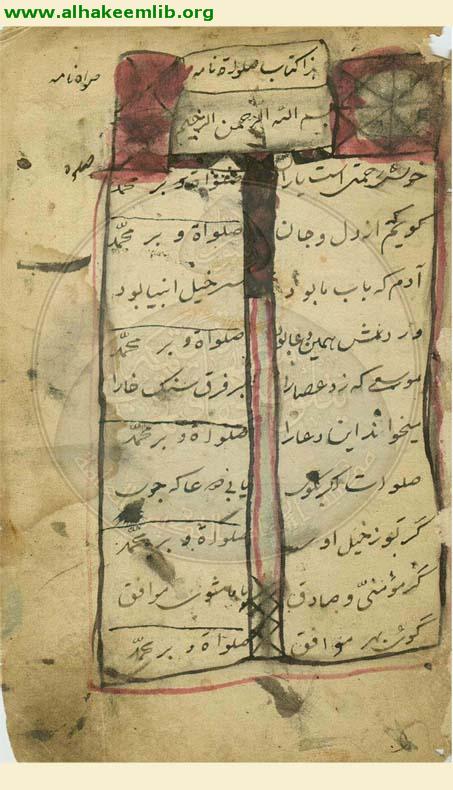 www.alhakeemlib.org
هذا کتاب صلواة نامه
بسم الله الرحمن الرحیم
خوش رحمتی است یارا صلواة و بر محمد
گویم از دل و جان صلواة و بر محمّد
آدم که باب ما بود سر خیل انبیا بود
ورد همین دعا بود صلواة و بر محمّد
موسی که زد عصا را بر فرق سنک خارا
میخواند این دعا را صلواة و بر محمّد
صلوات
صلواة و بر محمّد
گر مؤمنی و صادق با ما شوی موافق
صلواة و بر محمّد
صلواة